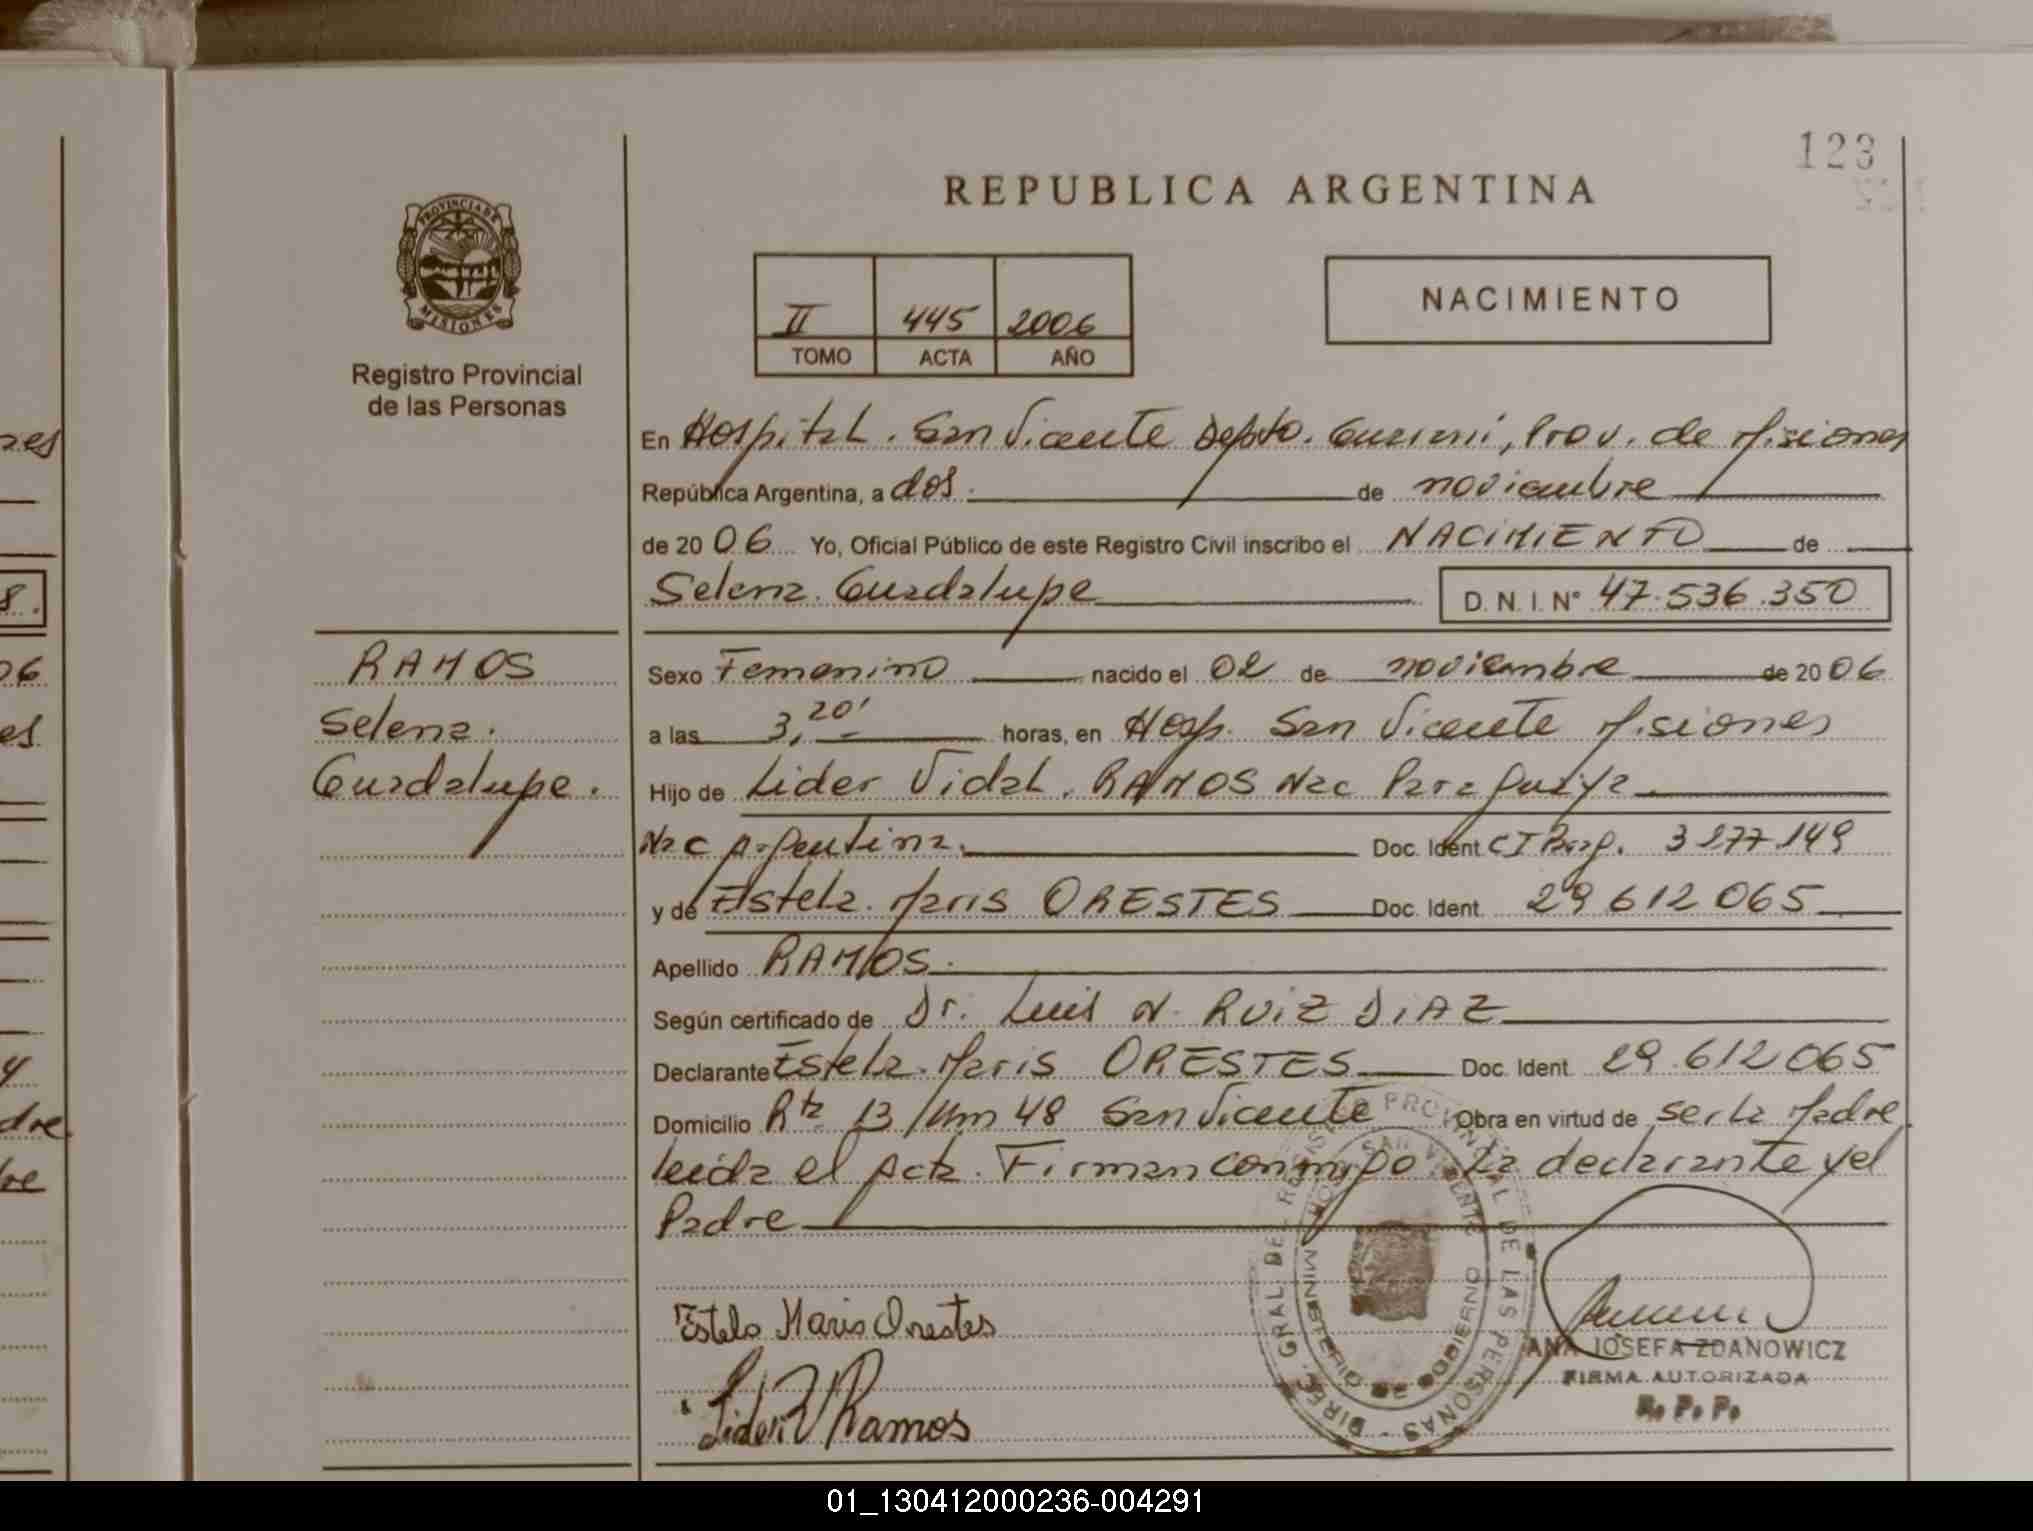 123
REPUBLICA ARGENTINA
PROVINCIA DE
MISIONES
Registro Provincial
de las Personas
II 445 2006
TOMO ACTA AÑO
NACIMIENTO
En Hospital. San Vicente Depto. Guarani, Prov. de Misiones
República Argentina, a dos. de noviembre
de 20 06 Yo, Oficial Público de este Registro Civil inscribo el NACIMIENTO de
Selena. Guadalupe D. N. I. N° 47.536.350
RAMOS
Selena.
Guadalupe.
Sexo Femenino nacido el 02 de noviembre de 20 06
a las 3,20' horas, en Hosp. San Vicente Misiones
Hijo de Lider Vidal. RAMOS Nac Paraguaya
Nac Argentina. Doc. Ident CI Parg. 3277.149
y de Estela. Maris ORESTES Doc. Ident. 29.612 065
Apellido RAMOS.
Según certificado de Dr. Luis N. RUIZ DIAZ
Declarante Estela. Maris ORESTES Doc. Ident. 29.612 065
Domicilio Rta 13 /Km 48 San Vicente Obra en virtud de ser la Madre
leida el Acta. Firman conmigo La declarante y el
Padre
Estela Maris Orestes
Lider V Ramos
DIREC. GRAL. DEL REGISTRO PROVINCIAL DE LAS PERSONAS
MINISTERIO DE GOBIERNO
SAN VICENTE
ANA JOSEFA ZDANOWICZ
FIRMA AUTORIZADA
R. P. P.
01_130412000236-004291